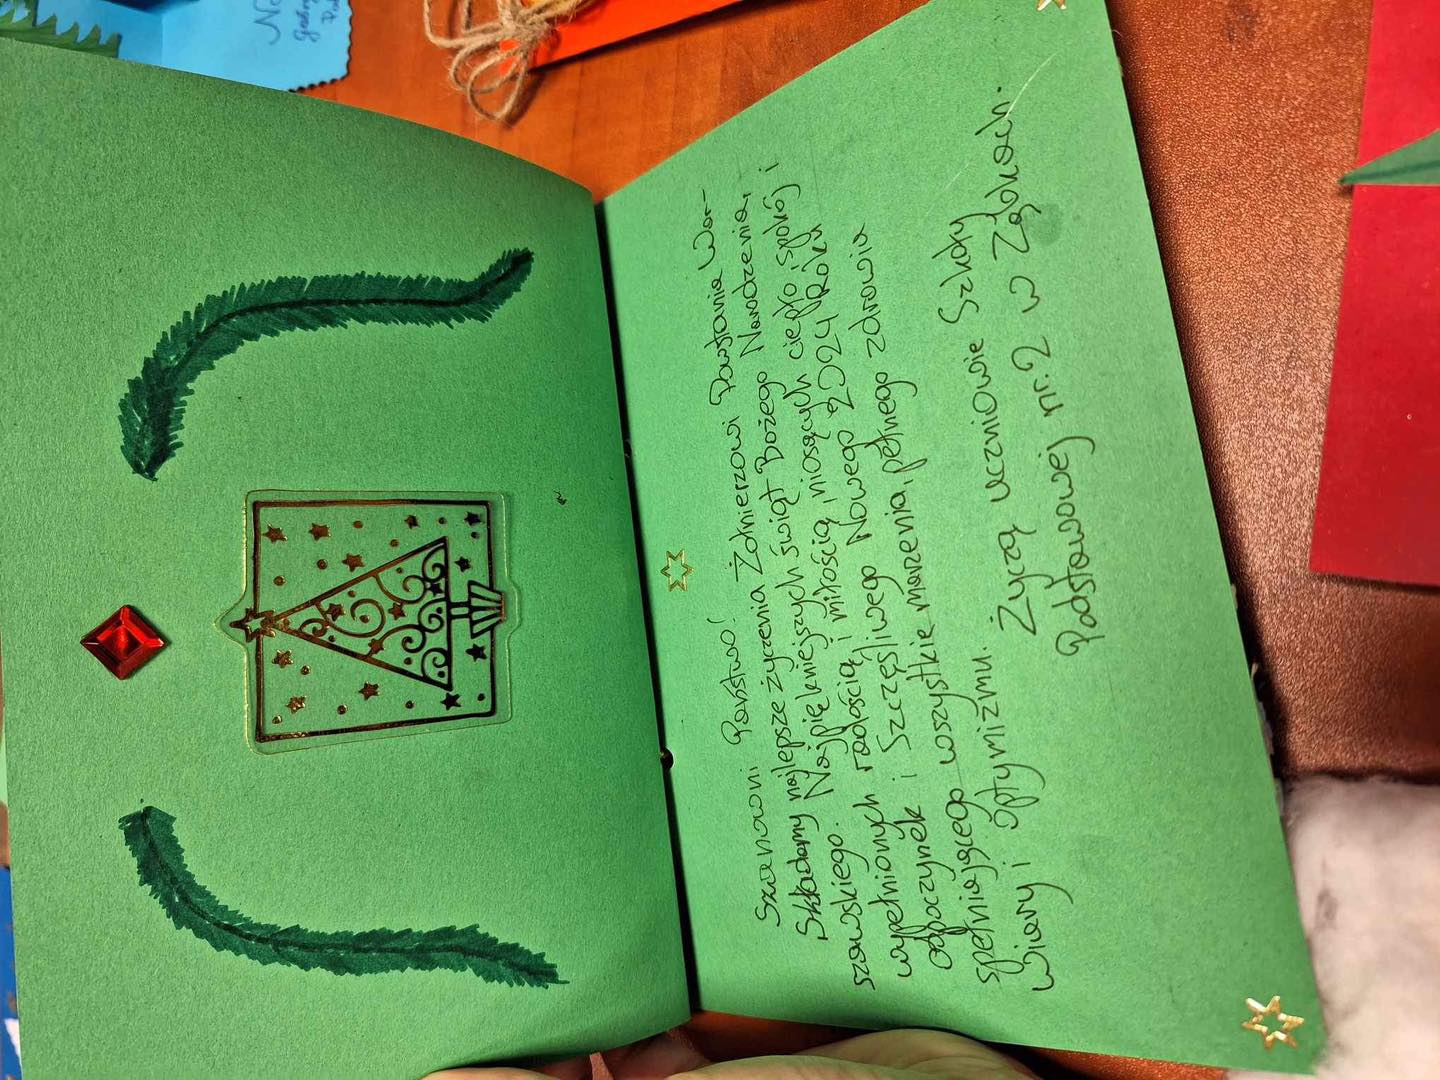 Szanowni Państwo!
Składamy najlepsze życzenia Żołnierzowi Powstania War-
szawskiego. Najpiękniejszych świąt Bożego Narodzenia,
wypełnionych radością i miłością, niosących ciepło, spokój i
odpoczynek i Szczęśliwego Nowego 2024 Roku
spełniającego wszystkie marzenia, pełnego zdrowia
wiary i optymizmu.
Życzą uczniowie Szkoły
Podstawowej nr. 2 w Ząbkach.